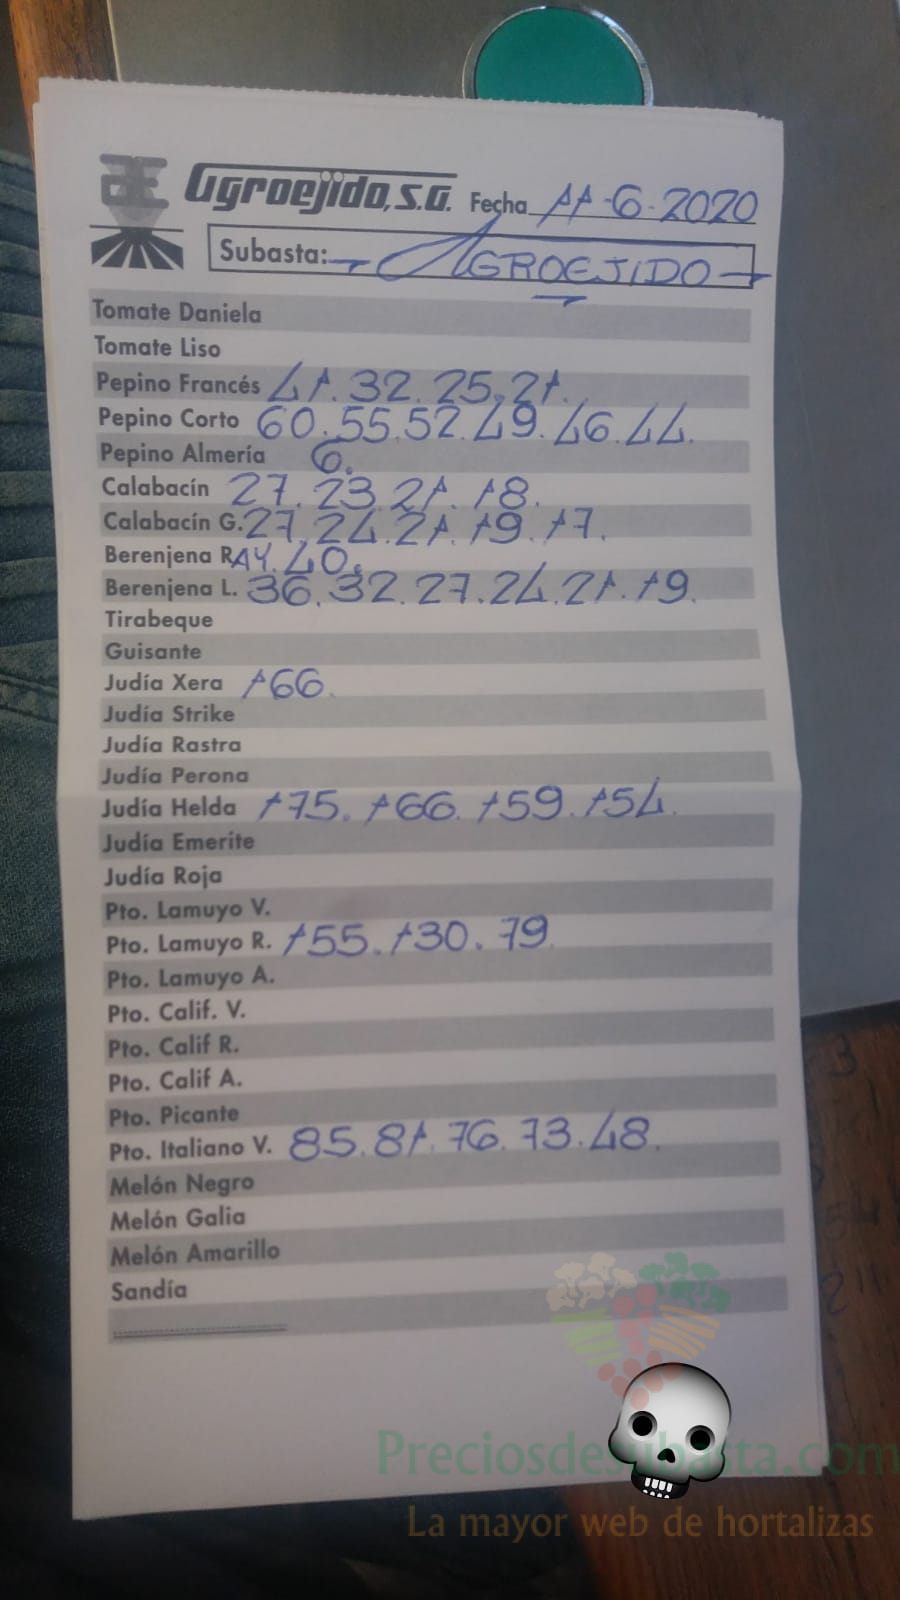 Agroejido, S.A. Fecha 11-6-2020
Subasta: AGROEJIDO
Tomate Daniela
Tomate Liso
Pepino Francés 41. 32. 25. 21.
Pepino Corto 60. 55. 52. 49. 46. 44.
Pepino Almería 6.
Calabacín 27. 23. 21. 18.
Calabacín G. 27. 24. 21. 19. 17.
Berenjena RAY. 40.
Berenjena L. 36. 32. 27. 24. 21. 19.
Tirabeque
Guisante
Judía Xera 166.
Judía Strike
Judía Rastra
Judía Perona
Judía Helda 175. 166. 159. 154.
Judía Emerite
Judía Roja
Pto. Lamuyo V.
Pto. Lamuyo R. 155. 130. 79
Pto. Lamuyo A.
Pto. Calif. V.
Pto. Calif R.
Pto. Calif A.
Pto. Picante
Pto. Italiano V. 85. 81. 76. 73. 48.
Melón Negro
Melón Galia
Melón Amarillo
Sandía
Preciosdesubasta.com
La mayor web de hortalizas